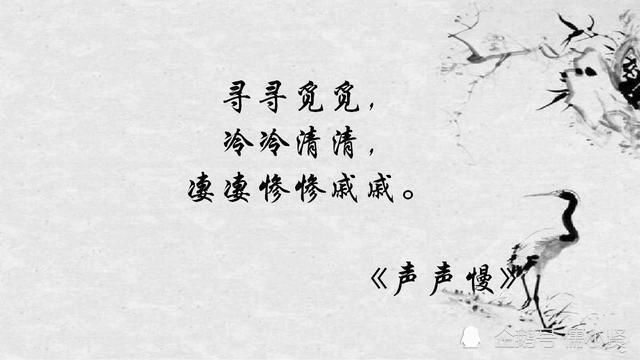 寻寻觅觅，
冷冷清清，
凄凄惨惨戚戚。
《声声慢》